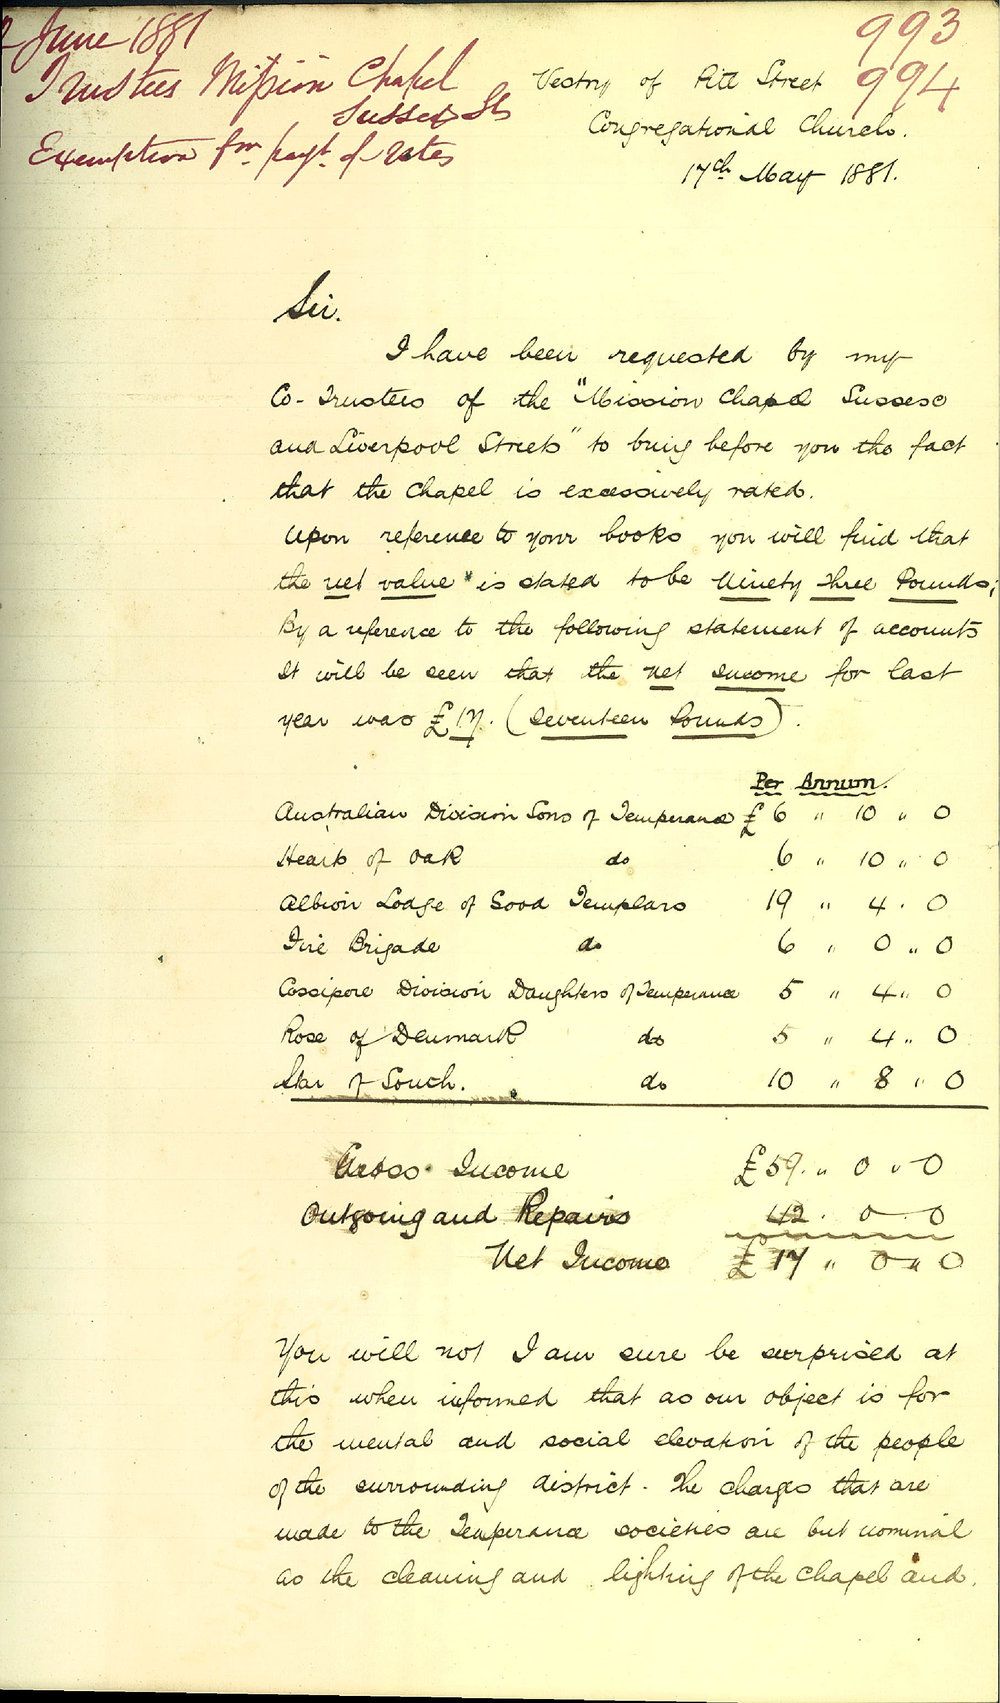 2 June 1881
Trustees Mission Chapel
Sussex St
Exemption fm payt. of rates
993
994
Vestry of Pitt Street
Congregational Church.
17th May 1881.
Sir.
I have been requested by my
Co-Trustees of the "Mission Chapel Sussex
and Liverpool Streets" to bring before you the fact
that the Chapel is excessively rated.
Upon reference to your books you will find that
the net value is stated to be Ninety three Pounds;
By a reference to the following statement of accounts
It will be seen that the net income for last
year was £17. (Seventeen Pounds).
Per Annum.
Australian Division Sons of Temperance £ 6 " 10 " 0
Hearts of Oak do 6 " 10 " 0
Albion Lodge of Good Templars 19 " 4 . 0
Fire Brigade do 6 " 0 " 0
Cossipore Division Daughters of Temperance 5 " 4 " 0
Rose of Denmark do 5 " 4 " 0
Star of South. do 10 " 8 " 0
Gross Income £59 . " 0 " 0
Outgoing and Repairs 42 . 0 . 0
Net Income £ 17 " 0 " 0
You will not I am sure be surprised at
this when informed that as our object is for
the mental and social elevation of the people
of the surrounding district. The charges that are
made to the Temperance societies are but nominal
as the cleaning and lighting of the Chapel and